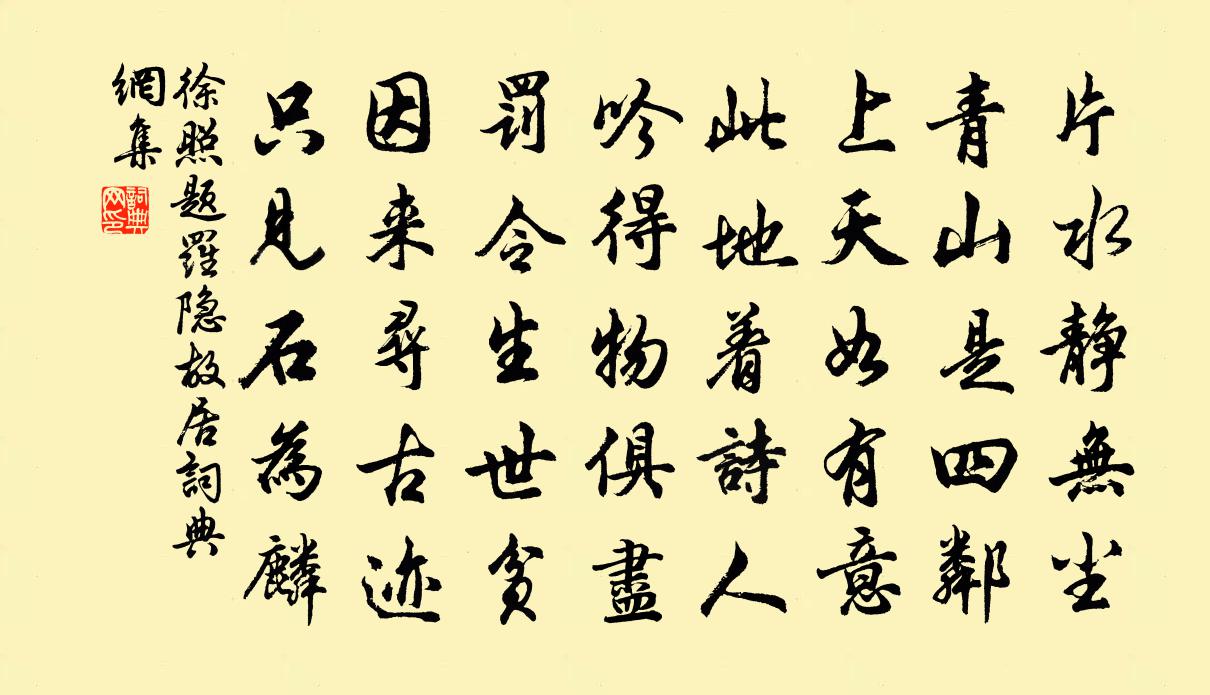 片水静無尘
青山是四鄰
上天如有意
此地着詩人
吟得物俱盡
罰令生世貧
因来尋古迹
只見石為麟
徐照题羅隐故居詞典
網集
詞典
网印